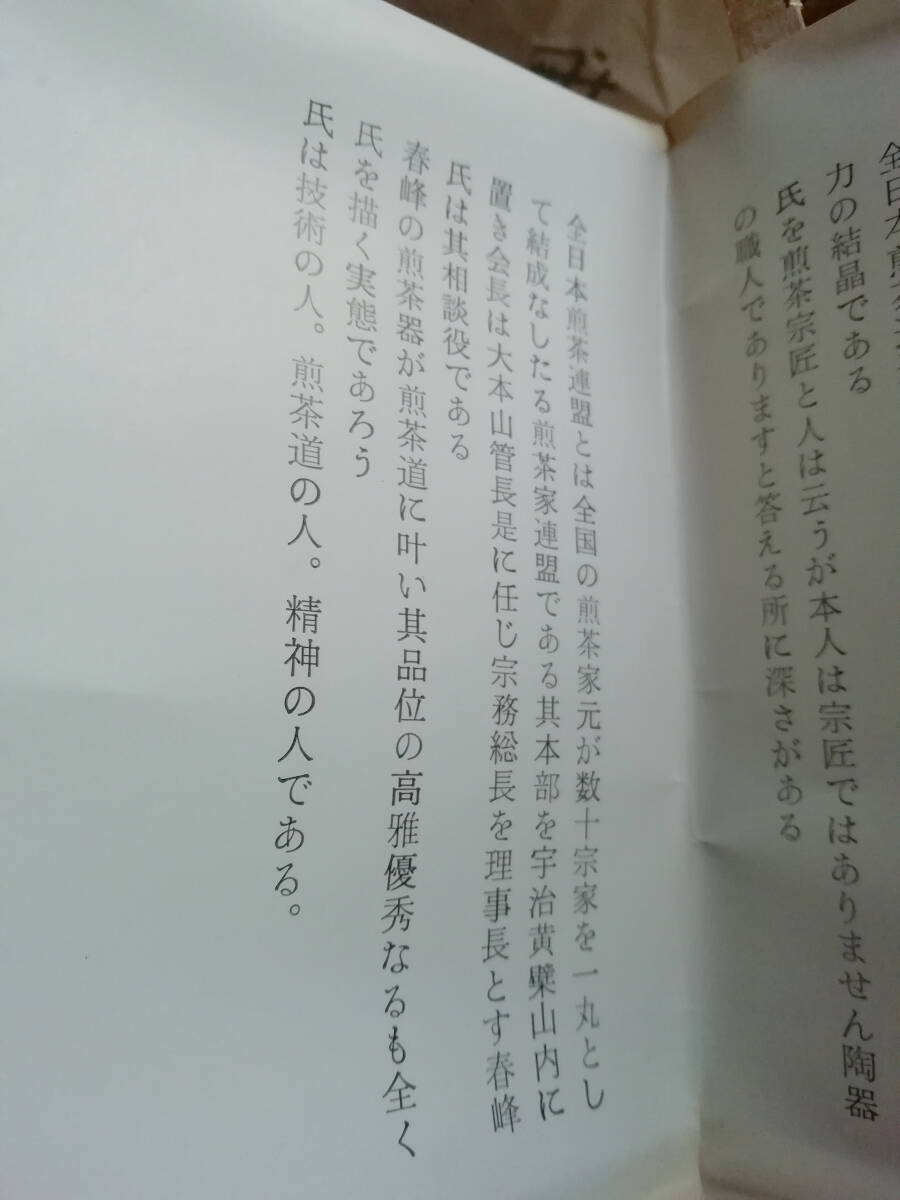 全日本煎茶
力の結晶である
氏を煎茶宗匠と人は云うが本人は宗匠ではありません陶器
の職人でありますと答える所に深さがある
全日本煎茶連盟とは全国の煎茶家元が数十宗家を一丸とし
て結成なしたる煎茶家連盟である其本部を宇治黄檗山内に
置き会長は大本山管長是に任じ宗務総長を理事長とす春峰
氏は其相談役である
春峰の煎茶器が煎茶道に叶い其品位の高雅優秀なるも全く
氏を描く実態であろう
氏は技術の人。煎茶道の人。精神の人である。